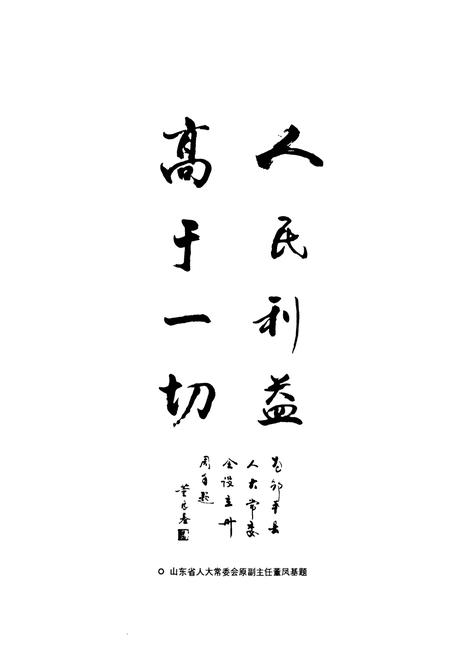 人民利益
高于一切
为邹平县
人大常委
会设立卅
周年题
○ 山东省人大常委会原副主任董凤基题